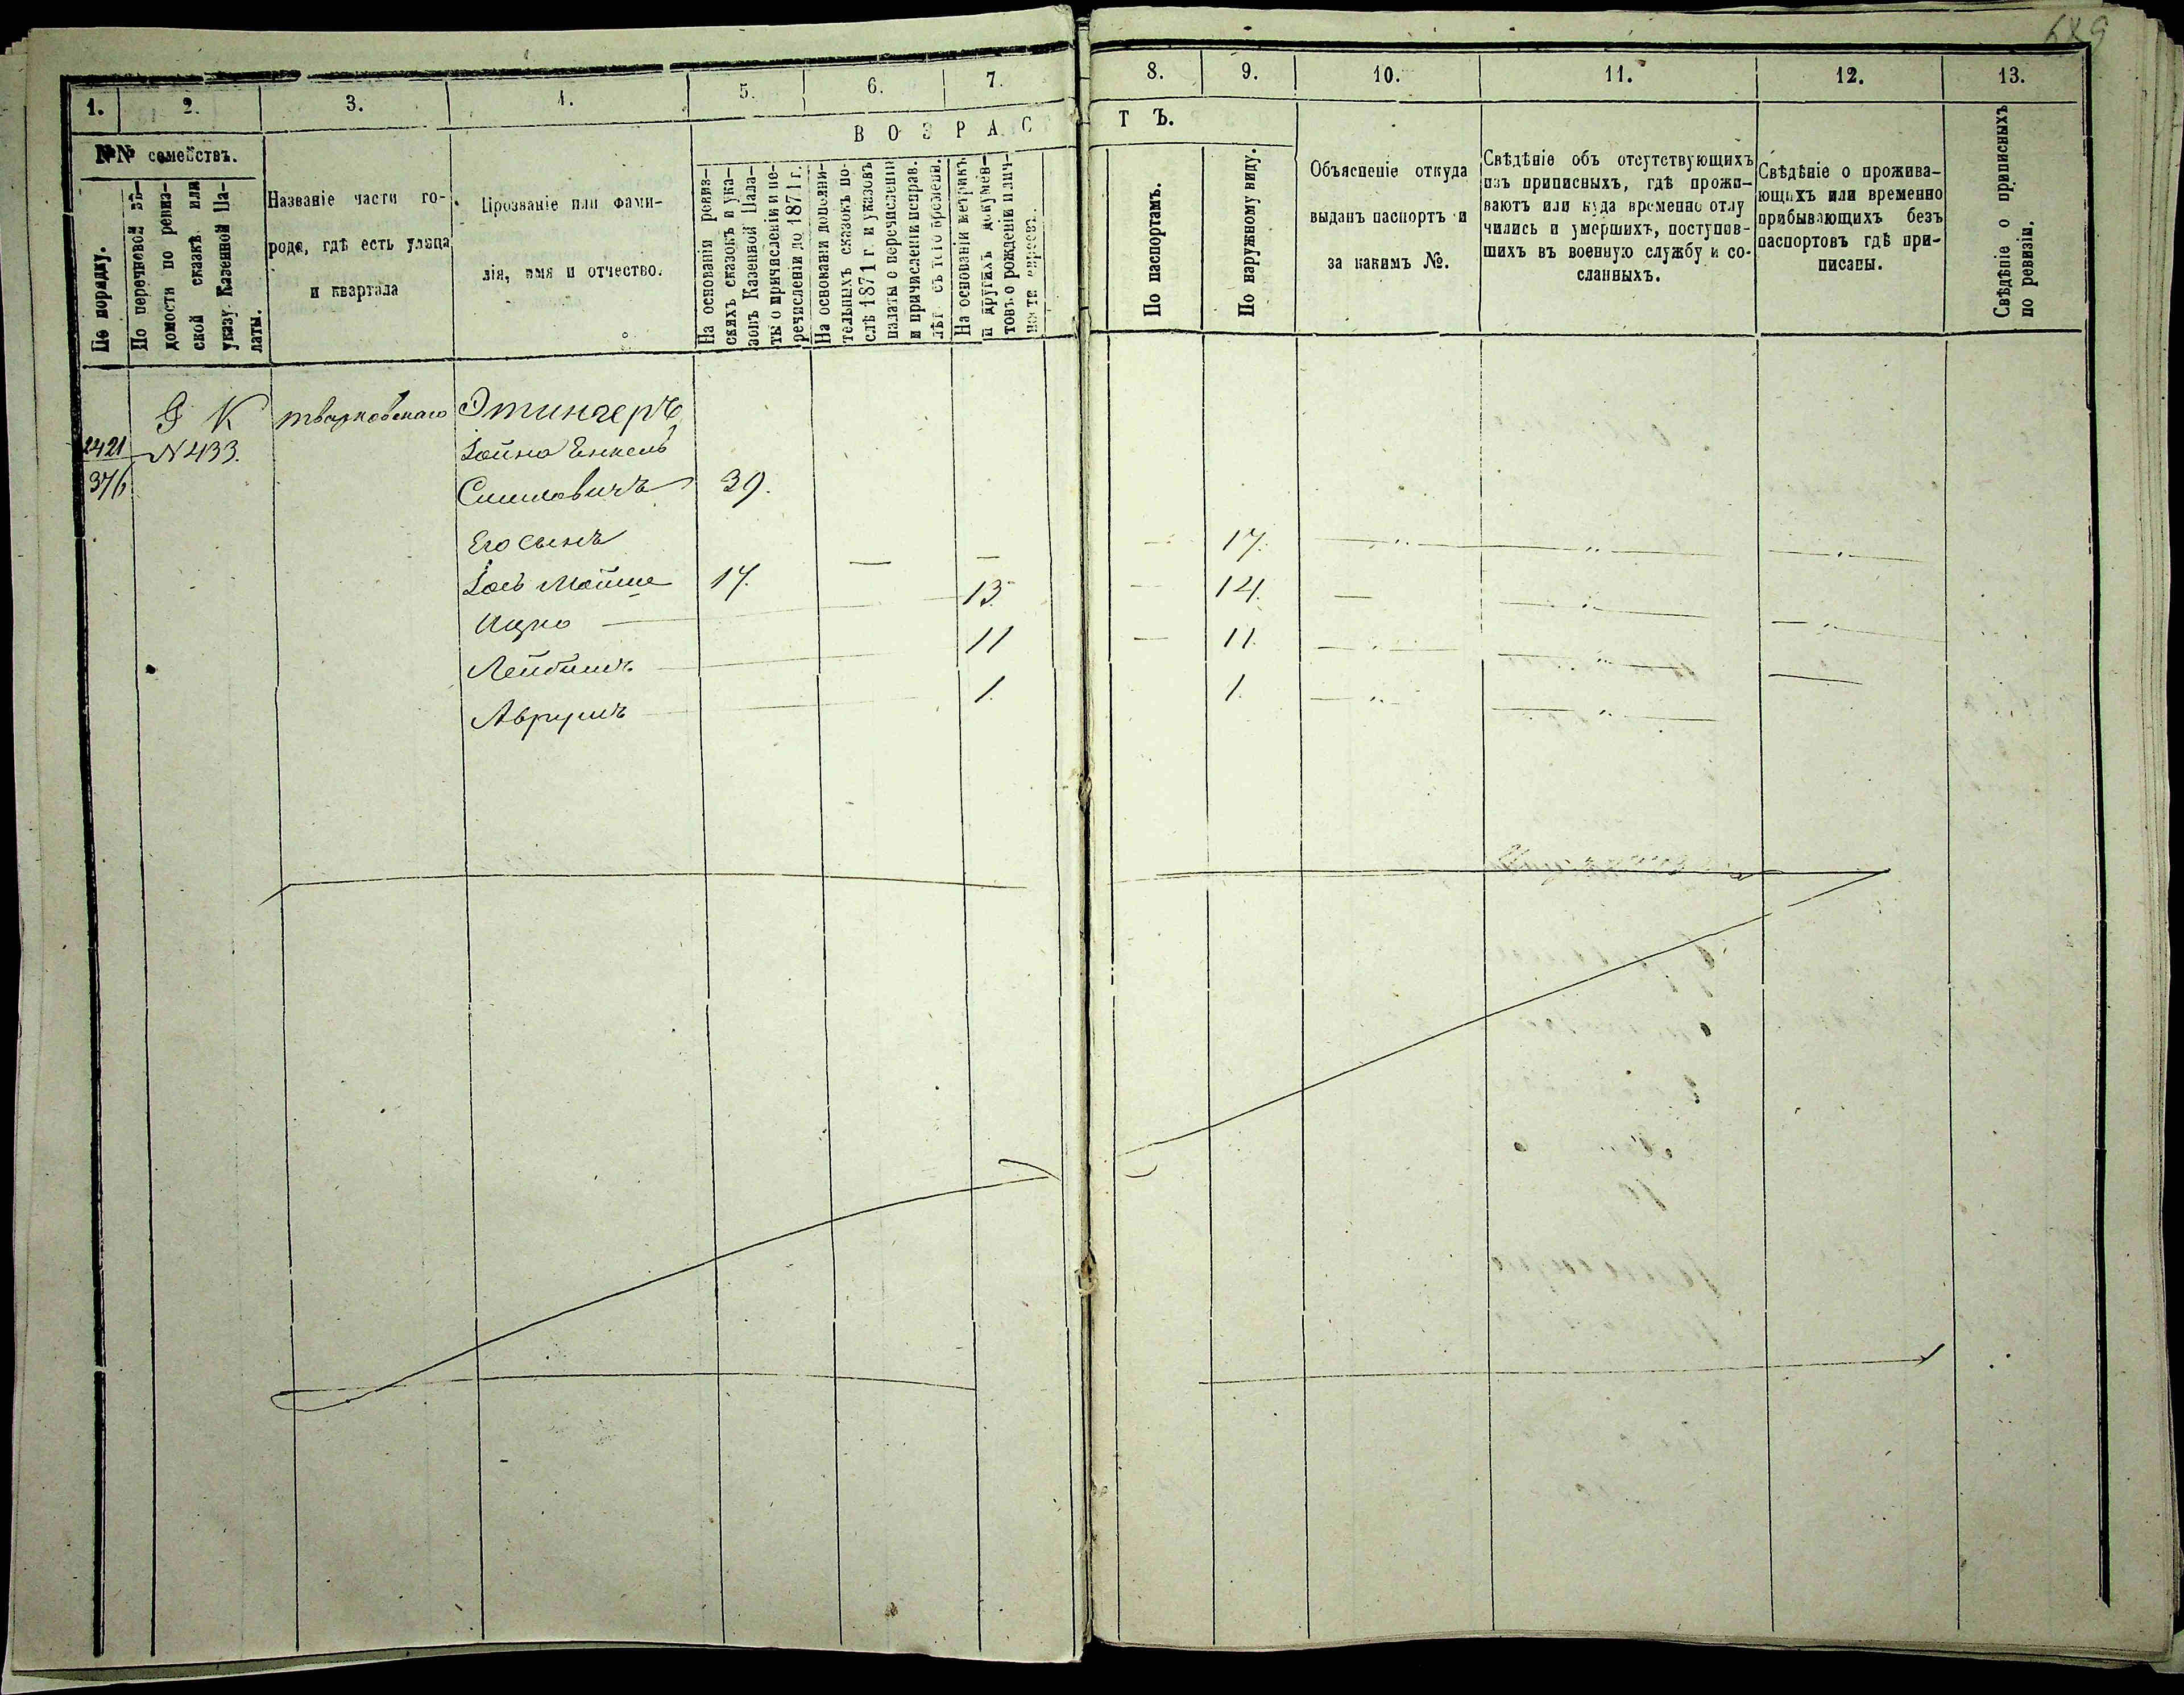 689
1. 2. 3. 4. 5. 6. 7. 8. 9. 10. 11. 12. 13.
ВОЗРАСТЪ.
№№ семействъ.
По порядку.
По перечневой вѣ-
домости по ревиз-
ской сказкѣ или
указу Казенной Па-
латы.
Названіе части го-
рода, гдѣ есть улица
и квартала
Прозваніе или фами-
лія, имя и отчество.
На основаніи ревиз-
скихъ сказокъ и ука-
зовъ Казенной Пала-
ты о причисленіи и пе-
речисленіи до 1871 г.
На основаніи дополни-
тельныхъ сказокъ по-
слѣ 1871 г. и указовъ
палаты о перечисленіи
и причисленіи исправ.
лѣт съ того времени.
На основаніи метрикъ
и другихъ докумен-
товъ о рожденіи и лич-
ности евреевъ.
По паспортамъ.
По наружному виду.
Объясненіе откуда
выданъ паспортъ и
за какимъ №.
Свѣдѣніе объ отсутствующихъ
изъ приписныхъ, гдѣ прожи-
ваютъ или куда временно отлу
чились и умершихъ, поступив-
шихъ въ военную службу и со-
сланныхъ.
Свѣдѣніе о прожива-
ющихъ или временно
прибывающихъ безъ
паспортовъ гдѣ при-
писаны.
Свѣдѣніе о приписныхъ
по ревизіи.
К Этингеръ
2421 N 433.
376 39.
Его сынъ 17.
Іось Мойше 17. — — — 14.
Ицко — 13 — 11.
Лейбишъ — 11 1.
Аврумъ — 1.